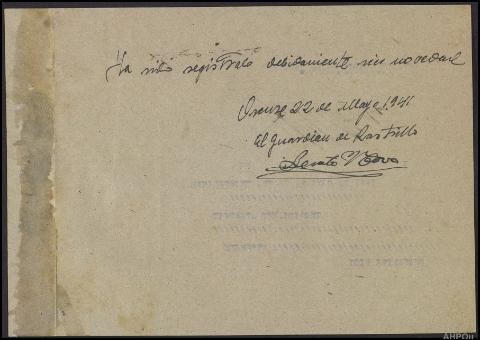 Ha sido registrado debidamente sin novedad
Orense 22 de Mayo 1941
El Guardian de Rastrillo
Benito Novo
AHPOu